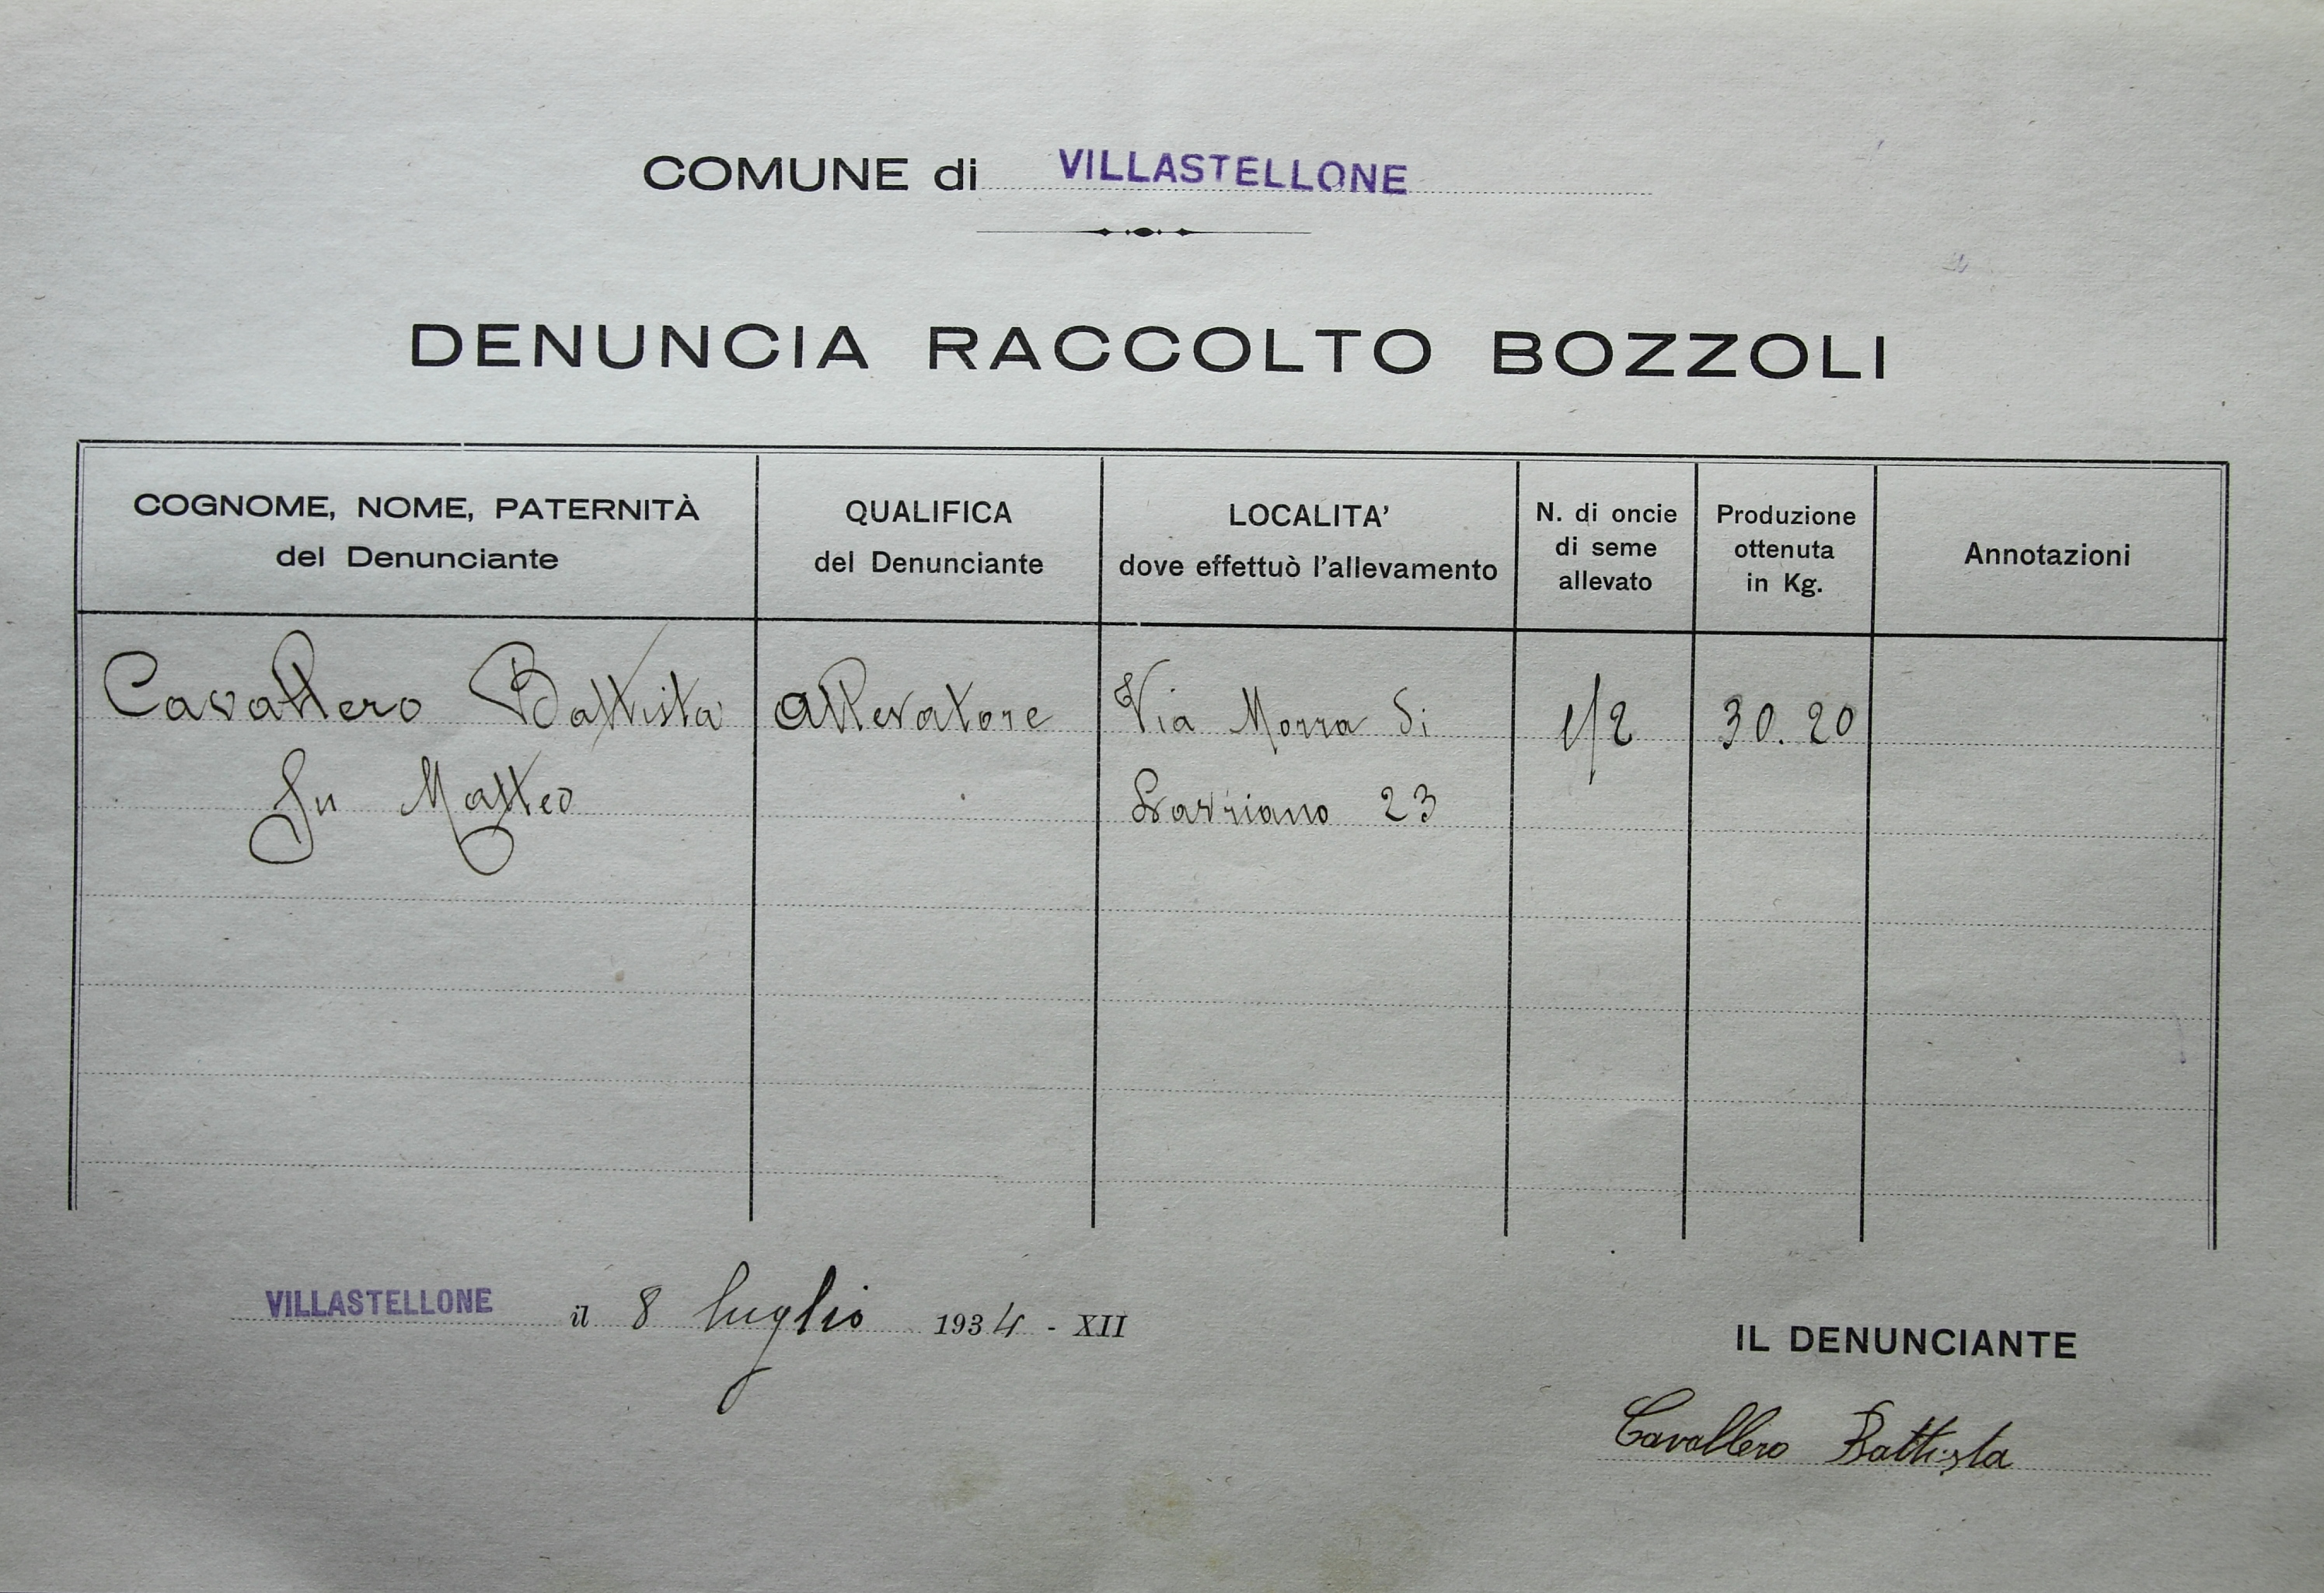 COMUNE di VILLASTELLONE
DENUNCIA RACCOLTO BOZZOLI
COGNOME, NOME, PATERNITÀ
del Denunciante
QUALIFICA
del Denunciante
LOCALITA'
dove effettuò l'allevamento
N. di oncie
di seme
allevato
Produzione
ottenuta
in Kg.
Annotazioni
Cavallero Battista allevatore Via Morra di 1/2 30.20
fu Matteo Lavriano 23
VILLASTELLONE il 8 luglio 1934 - XII
IL DENUNCIANTE
Cavallero Battista